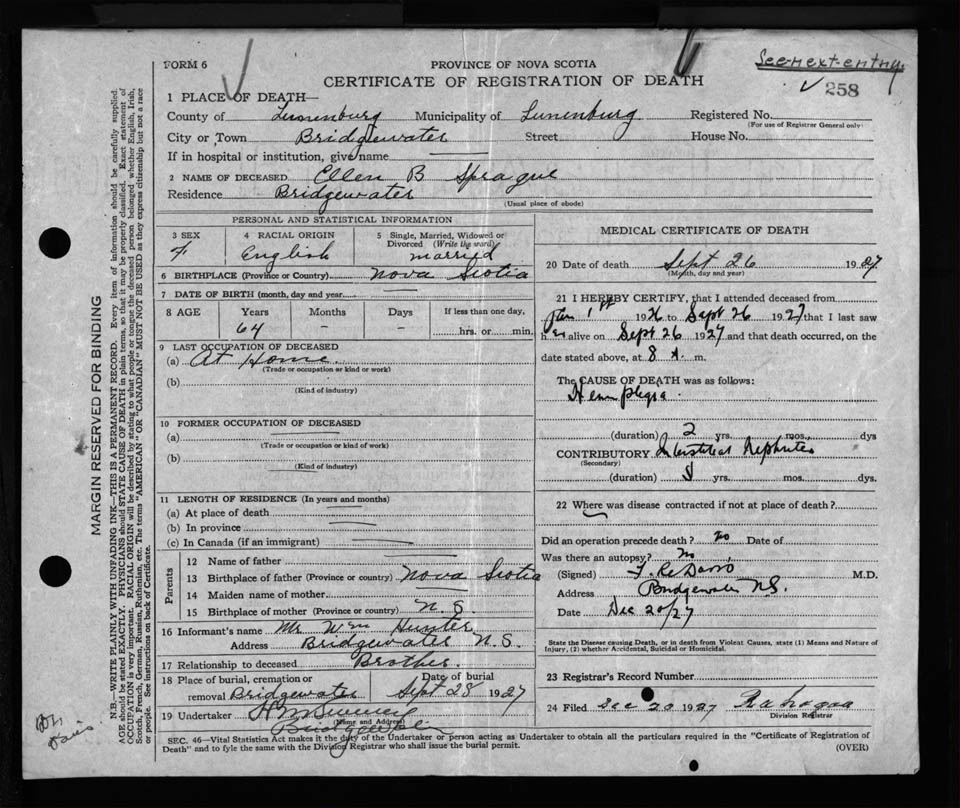 FORM 6
PROVINCE OF NOVA SCOTIA
See next entry
CERTIFICATE OF REGISTRATION OF DEATH
258
1 PLACE OF DEATH—
County of Lunenburg Municipality of Lunenburg Registered No.
(For use of Registrar General only)
City or Town Bridgewater Street House No.
If in hospital or institution, give name
2 NAME OF DECEASED Ellen B Sprague
Residence Bridgewater
(Usual place of abode)
PERSONAL AND STATISTICAL INFORMATION
3 SEX 4 RACIAL ORIGIN 5 Single, Married, Widowed or Divorced (Write the word)
F English married
6 BIRTHPLACE (Province or Country) Nova Scotia
7 DATE OF BIRTH (month, day and year)
8 AGE Years Months Days If less than one day,
64 hrs. or min.
9 LAST OCCUPATION OF DECEASED
(a) At Home
(Trade or occupation or kind or work)
(b)
(Kind of industry)
10 FORMER OCCUPATION OF DECEASED
(a)
(Trade or occupation or kind of work)
(b)
(Kind of industry)
11 LENGTH OF RESIDENCE (In years and months)
(a) At place of death
(b) In province
(c) In Canada (if an immigrant)
Parents
12 Name of father
13 Birthplace of father (Province or country) Nova Scotia
14 Maiden name of mother
15 Birthplace of mother (Province or country) N.S.
16 Informant's name Mr Wm Hunter
Address Bridgewater N.S.
17 Relationship to deceased Brother.
18 Place of burial, cremation or Date of burial
removal Bridgewater Sept 28 1927
19 Undertaker
(Name and Address)
Bridgewater
MEDICAL CERTIFICATE OF DEATH
20 Date of death Sept 26 1927
(Month, day and year)
21 I HEREBY CERTIFY, that I attended deceased from
1st 1926 to Sept 26 1927 that I last saw
her alive on Sept 26 1927 and that death occurred, on the
date stated above, at 8 A. m.
The CAUSE OF DEATH was as follows:
Hemiplegia
(duration) 2 yrs. mos. dys
CONTRIBUTORY Interstitial Nephritis
(Secondary)
(duration) yrs. mos. dys.
22 Where was disease contracted if not at place of death?
Did an operation precede death? no Date of
Was there an autopsy? no
(Signed) M.D.
Address Bridgewater N.S.
Date Dec 20/27
State the Disease causing Death, or in death from Violent Causes, state (1) Means and Nature of
Injury, (2) whether Accidental, Suicidal or Homicidal.
23 Registrar's Record Number
24 Filed Dec 20 1927
Division Registrar
SEC. 46—Vital Statistics Act makes it the duty of the Undertaker or person acting as Undertaker to obtain all the particulars required in the "Certificate of Registration of
Death" and to fyle the same with the Division Registrar who shall issue the burial permit.
(OVER)
MARGIN RESERVED FOR BINDING
N.B.—WRITE PLAINLY WITH UNFADING INK—THIS IS A PERMANENT RECORD. Every item of information should be carefully supplied.
AGE should be stated EXACTLY. PHYSICIANS should STATE CAUSE OF DEATH in plain terms, so that it may be properly classified. Exact statement of
OCCUPATION is very important. RACIAL ORIGIN will be described by stating to what people or tongue the deceased person belonged whether English, Irish,
Scotch, French, German, Russian, Ruthenian, etc. The terms "AMERICAN" OR "CANADIAN" MUST NOT BE USED as they express citizenship but not a race
or people. See instructions on back of Certificate.